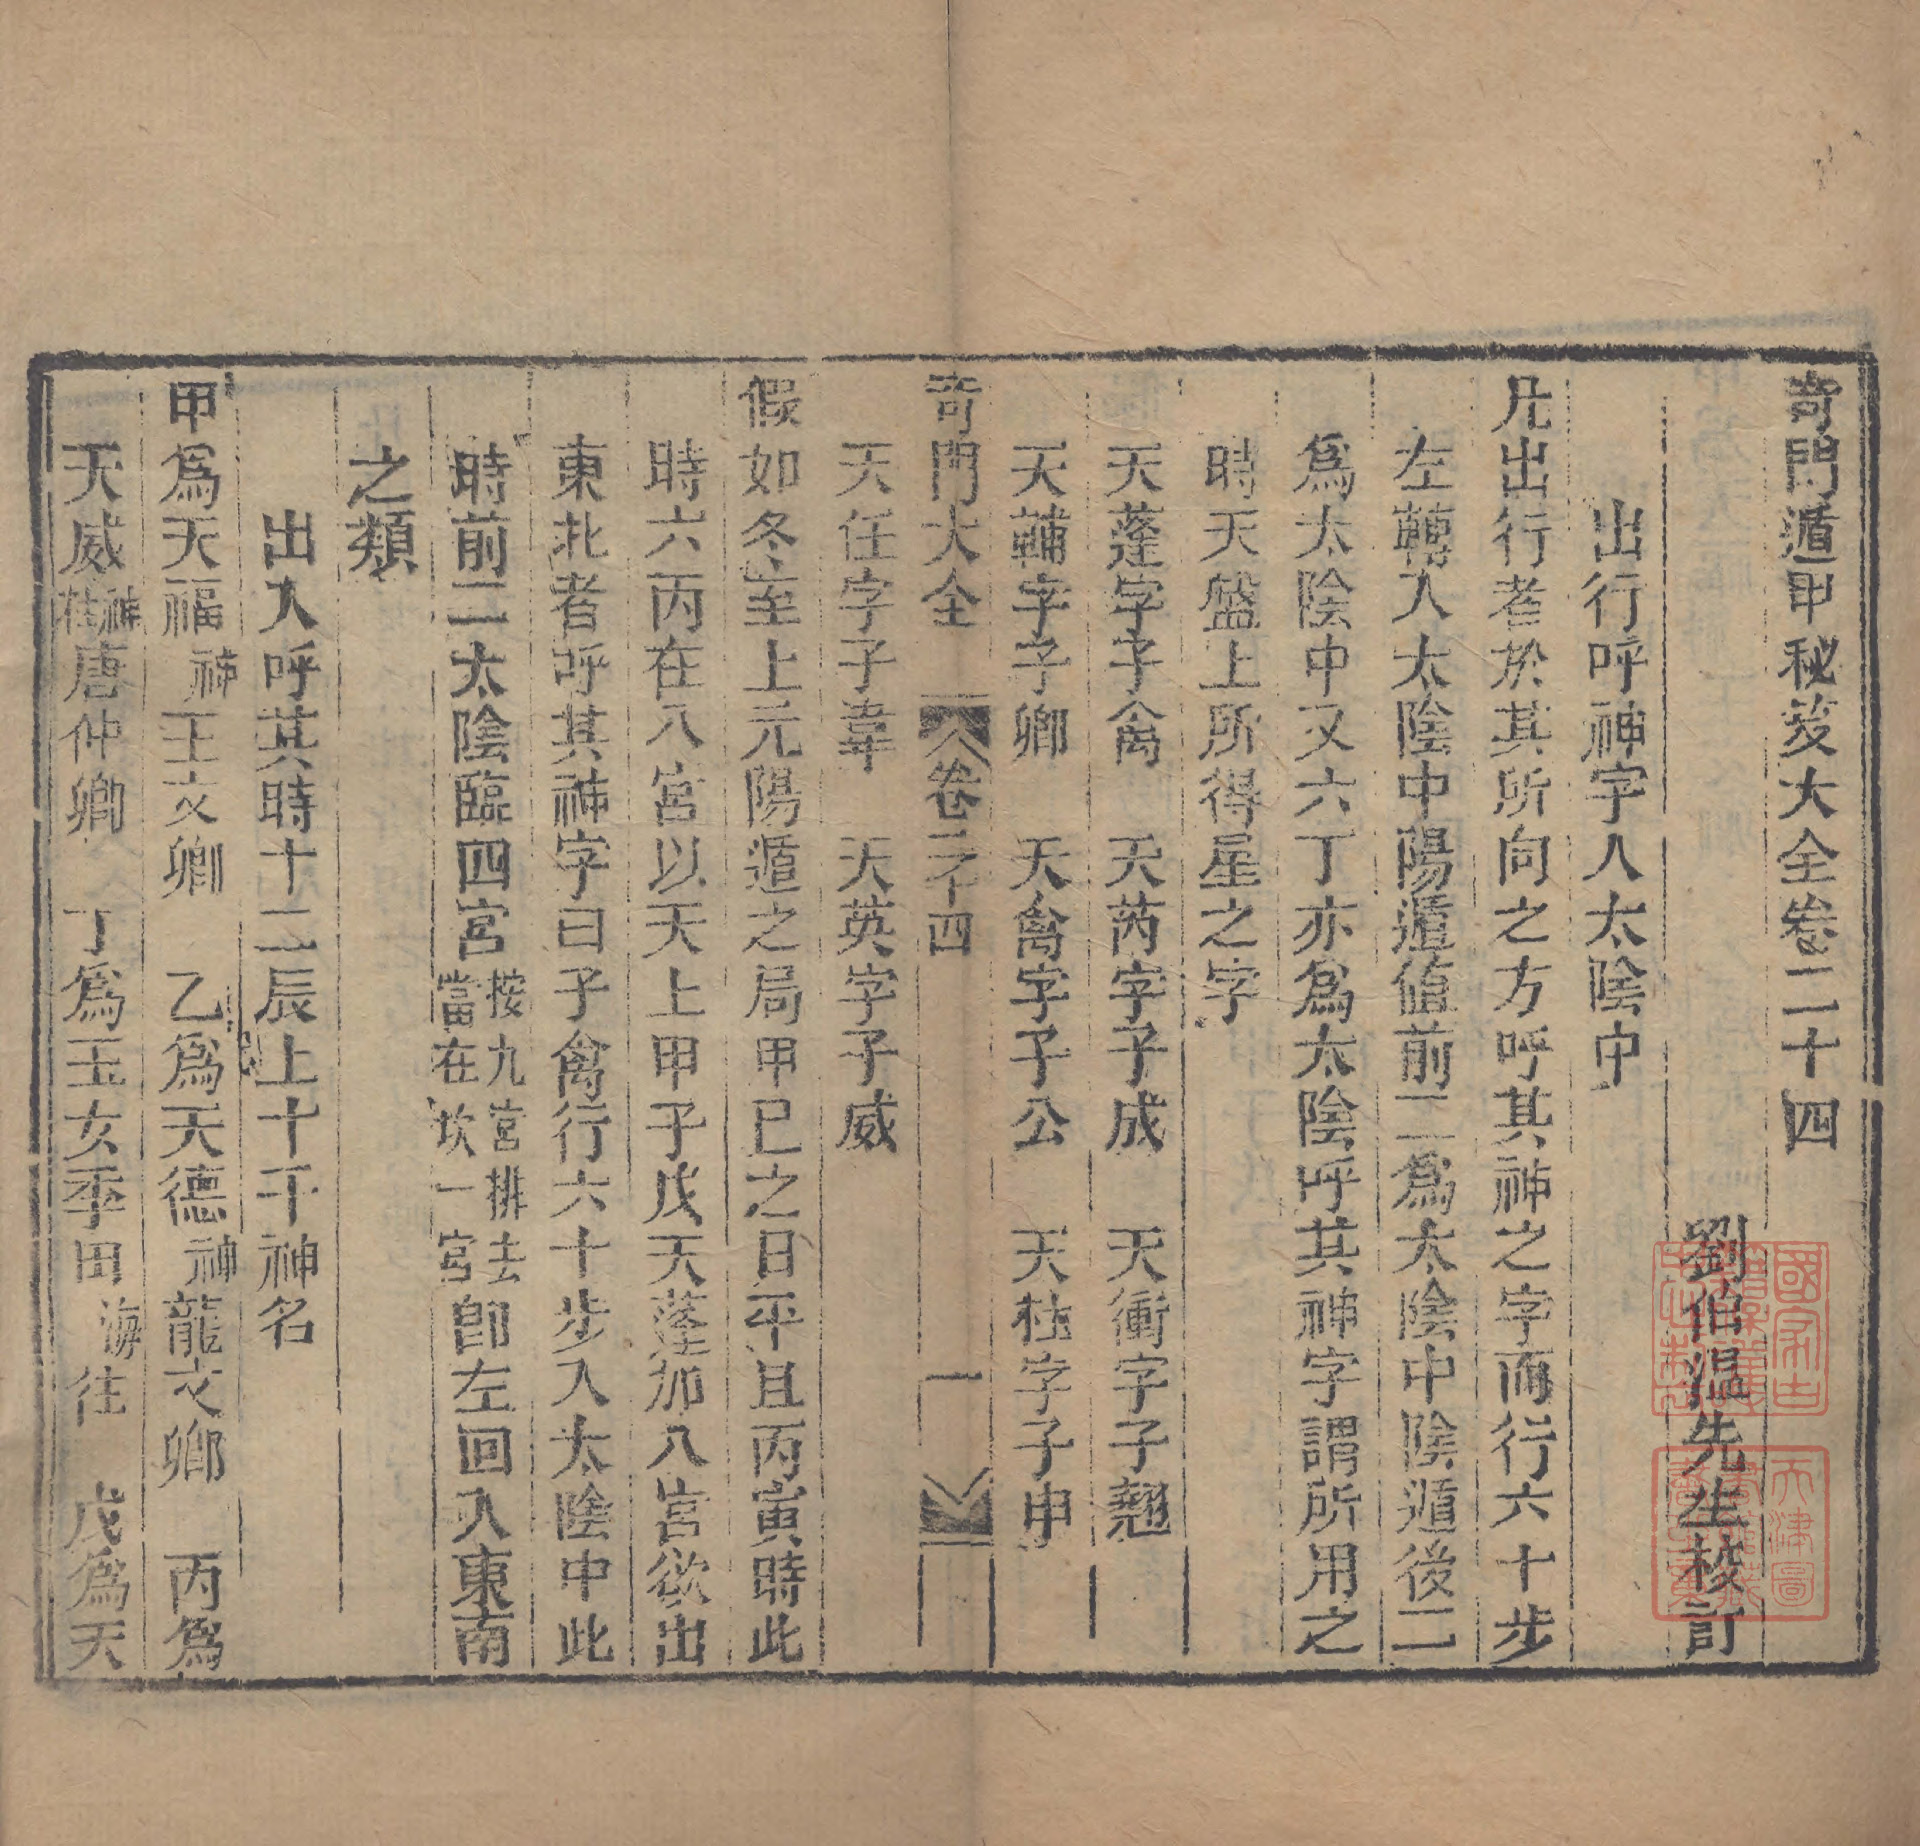 奇門遁甲秘笈大全卷二十四
劉伯溫先生校訂
出行呼神字人太陰中
凡出行者於其所向之方呼其神之字而行六十步
左轉入太陰中陽遁值前二為太陰中陰遁後二
為太陰中又六丁亦為太陰呼其神字謂所用之
時天盤上所得星之字
天蓬字子禽 天芮字子成 天衝字子翹
天輔字子卿 天禽字子公 天柱字子申
奇門大全 卷二十四 一
天任字子韋 天英字子威
假如冬至上元陽遁之局甲已之日平旦丙寅時此
時六丙在八宮以天上甲子戊天蓬加八宮欲出
東北者呼其神字曰子禽行六十步入太陰中此
時前二太陰臨四宮按九宮排去當在坎一宮卽左回入東南
之類
出入呼其時十二辰上十干神名
甲為天福神王文卿 乙為天德神龍文卿 丙為
天威神在唐仲卿 丁為玉女季田海往 戊為天
國家古籍善本之精
天津圖書館藏